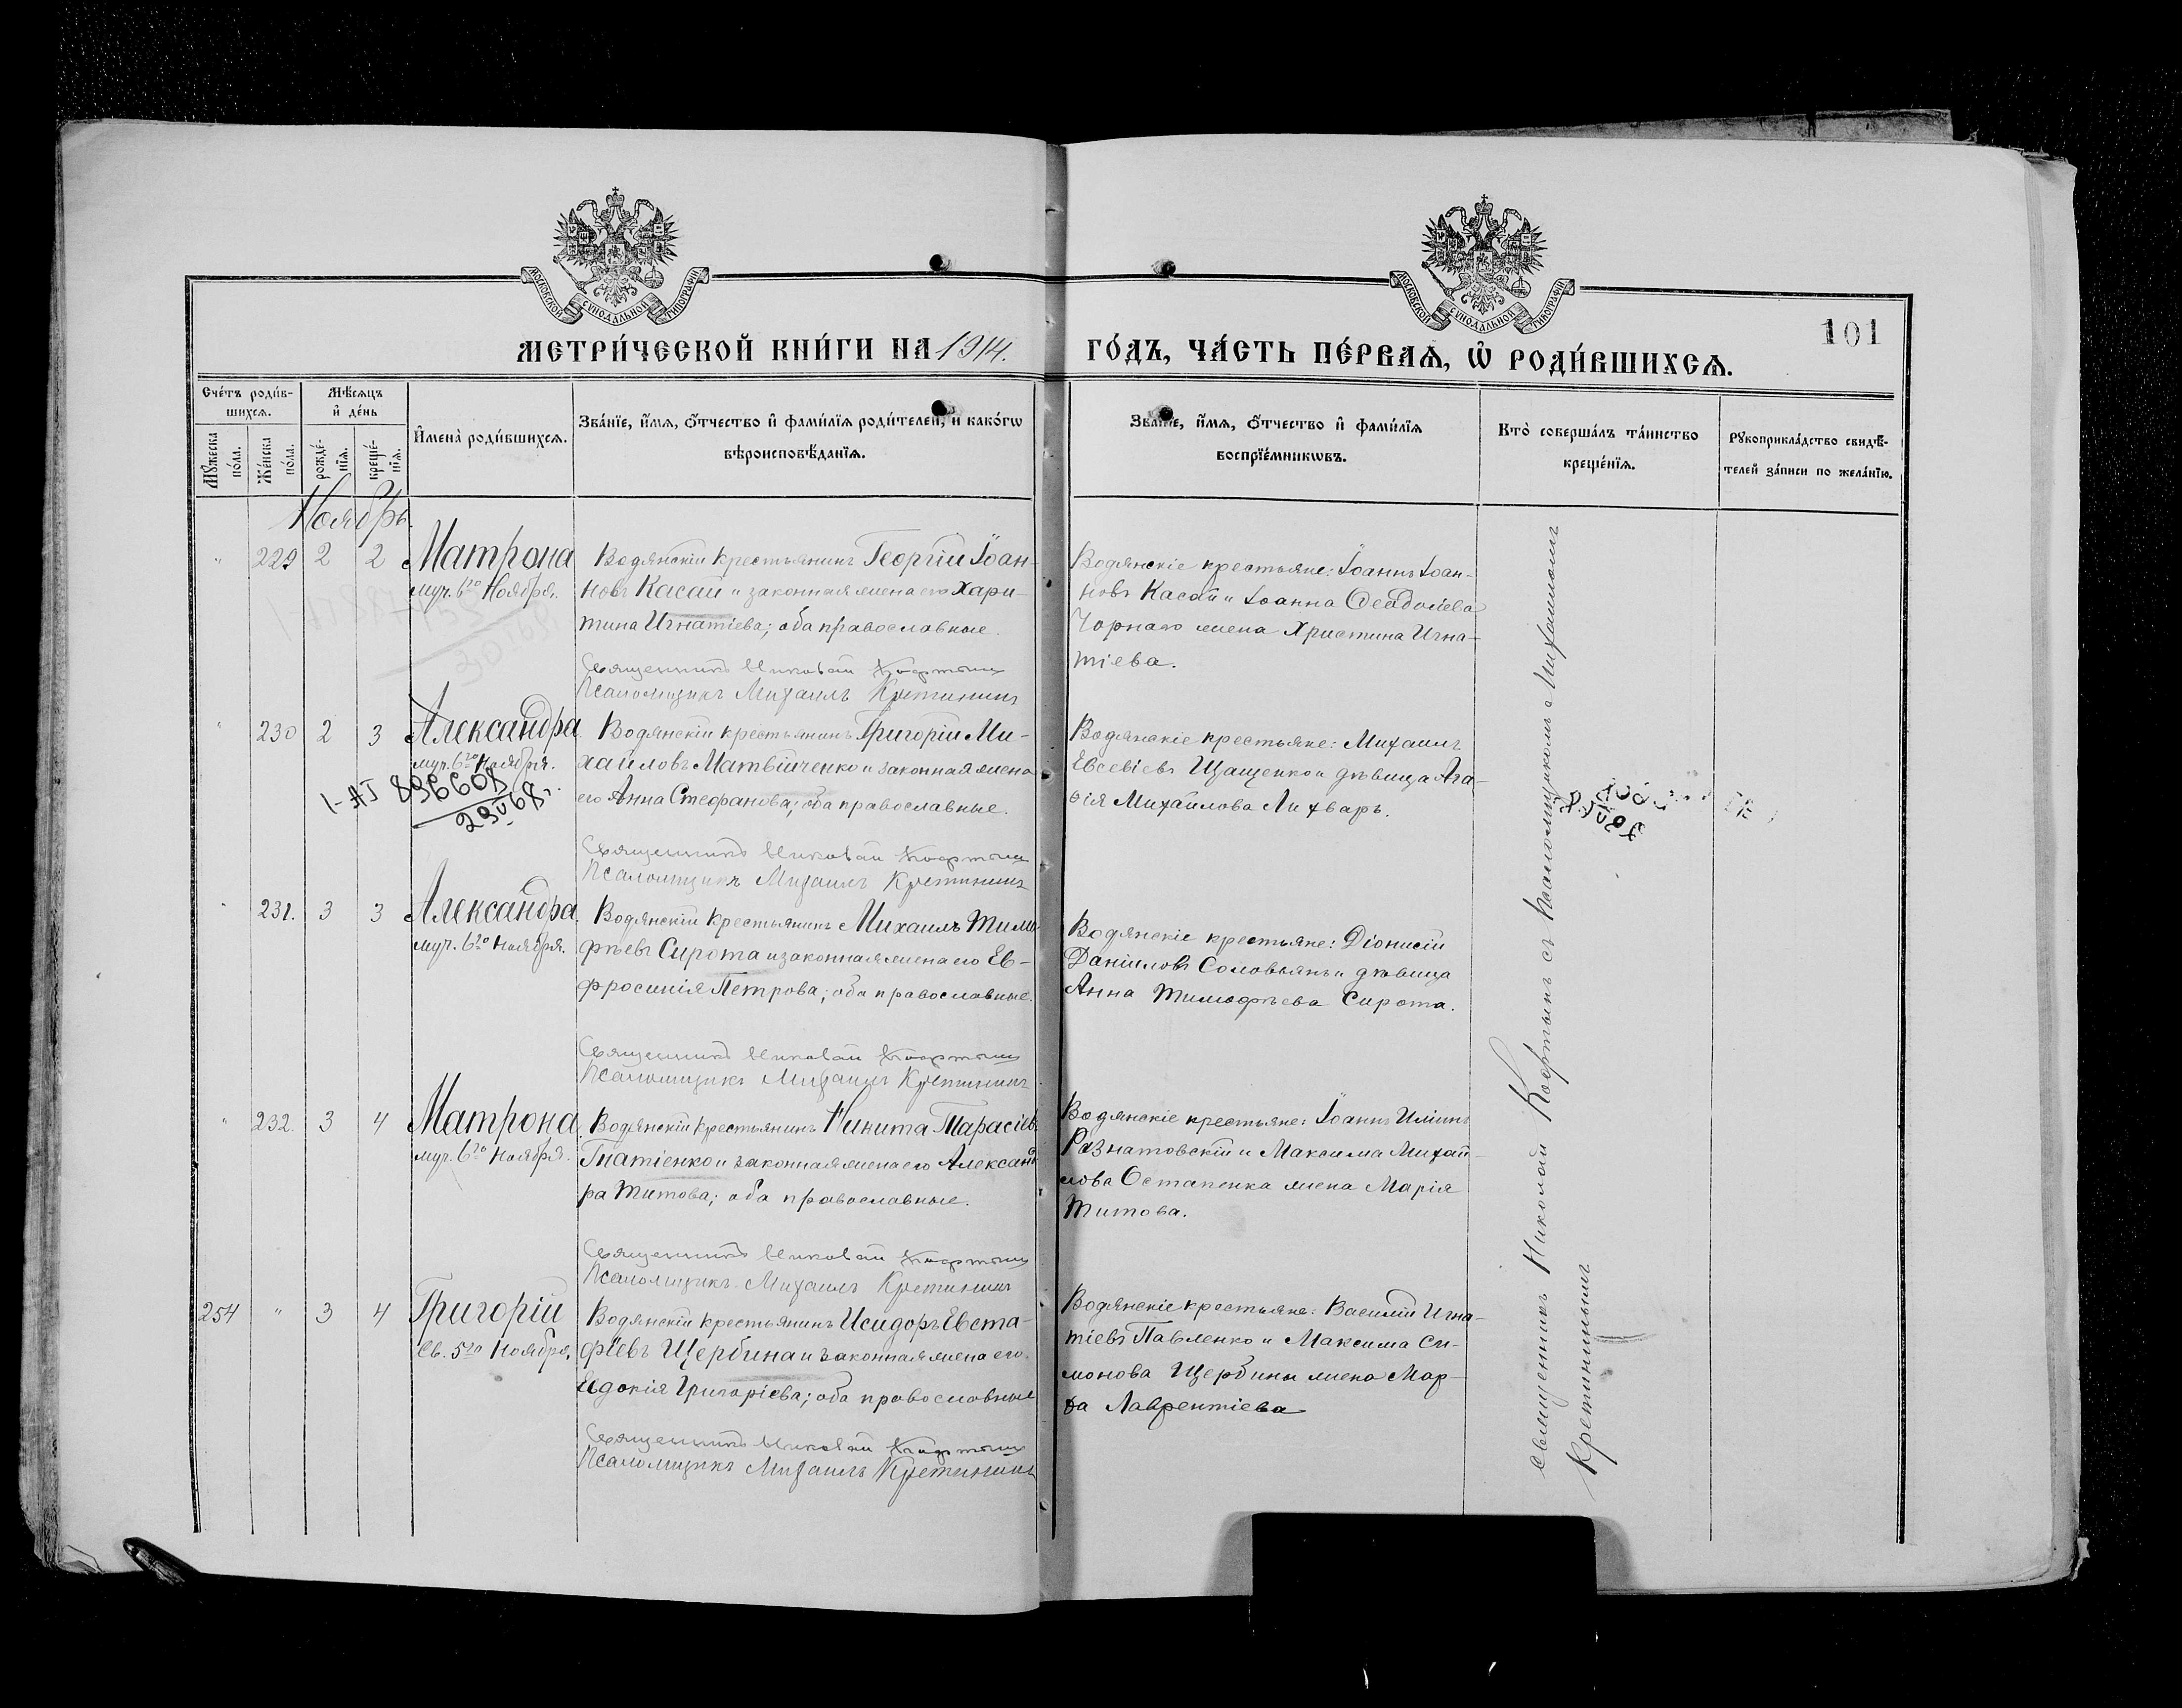 МОСКОВСКОЙ СѴНОДАЛЬНОЙ ТИПОГРАФІИ
МОСКОВСКОЙ СѴНОДАЛЬНОЙ ТИПОГРАФІИ
МЕТРИ́ЧЕСКОЙ КНИ́ГИ НА 1914. ГО́ДЪ, ЧА́СТЬ ПЕ́РВАѦ, Ѽ РОДИ́ВШИХСѦ.
101
Сче́тъ роди́в-
шихсѧ.
Мꙋ́жеска
по́ла.
Же́нска
по́ла.
Мѣ́сѧцъ
и҆ де́нь
рожде́-
нїѧ.
креще́-
нїѧ.
И҆мена̀ роди́вшихсѧ.
Зва́нїе, и҆́мѧ, ѻ҆́тчество и҆ фами́лїѧ роди́телей, и҆ како́гѡ
вѣроисповѣ́данїѧ.
Зва́нїе, и҆́мѧ, ѻ҆́тчество и҆ фами́лїѧ
воспрїе́мникѡвъ.
Кто̀ соверша́лъ та́инство
креще́нїѧ.
Рꙋкоприкла́дство свидѣ́-
телей за́писи по жела́нїю.
Ноябрь.
" 229 2 2 Матрона
муч. 6го Ноября.
Водянскій крестьянинъ Георгій Іоан-
новъ Касай и законная жена его Хари-
тина Игнатіева; оба православные.
Священникъ Николай Кофтынъ
Псаломщикъ Михаилъ Кретининъ
Водянскіе крестьяне: Іоаннъ Іоан-
новъ Касай и Іоанна Феодосіева
Чорнаго жена Христина Игна-
тіева.
" 230 2 3 Александра
муч. 6го Ноября.
I-АТ 896608
29 V 68г.
Водянскій крестьянинъ Григорій Ми-
хаиловъ Матвійченко и законная жена
его Анна Стефанова; оба православные.
Священникъ Николай Кофтынъ
Псаломщикъ Михаилъ Кретининъ
Водянскіе крестьяне: Михаилъ
Евсевіевъ Щащенко и дѣвица Ага-
ѳія Михайлова Лихваръ.
" 231. 3 3 Александра.
муч. 6го Ноября.
Водянскій крестьянинъ Михаилъ Тимо
фѣевъ Сирота и законная жена его Ев-
фросинія Петрова; оба православные.
Священникъ Николай Кофтынъ
Псаломщикъ Михаилъ Кретининъ
Водянскіе крестьяне: Діонисій
Даніиловъ Соловьянъ и дѣвица
Анна Тимофѣева Сирота.
" 232 3 4 Матрона
муч. 6го Ноября.
Водянскій крестьянинъ Никита Тарасіев
Гнатіенко и законная жена его Александ
ра Титова; оба православные.
Священникъ Николай Кофтынъ
Псаломщикъ Михаилъ Кретининъ
Водянскіе крестьяне: Іоаннъ Иліинъ
Разнатовскій и Максима Михай-
лова Остапенка жена Марія
Титова.
254 " 3 4 Григорій
Св. 5го Ноября.
Водянскій крестьянинъ Исидоръ Евста-
фіевъ Щербина и законная жена его
Евдокія Григоріева; оба православные
Священникъ Николай Кофтынъ
Псаломщикъ Михаилъ Кретининъ
Водянскіе крестьяне: Василій Игна-
тіевъ Павленко и Максима Си-
монова Щербины жена Мар-
ѳа Лаврентіева
Священникъ Николай Кофтынъ съ Псаломщикомъ Михаиломъ
Кретининымъ